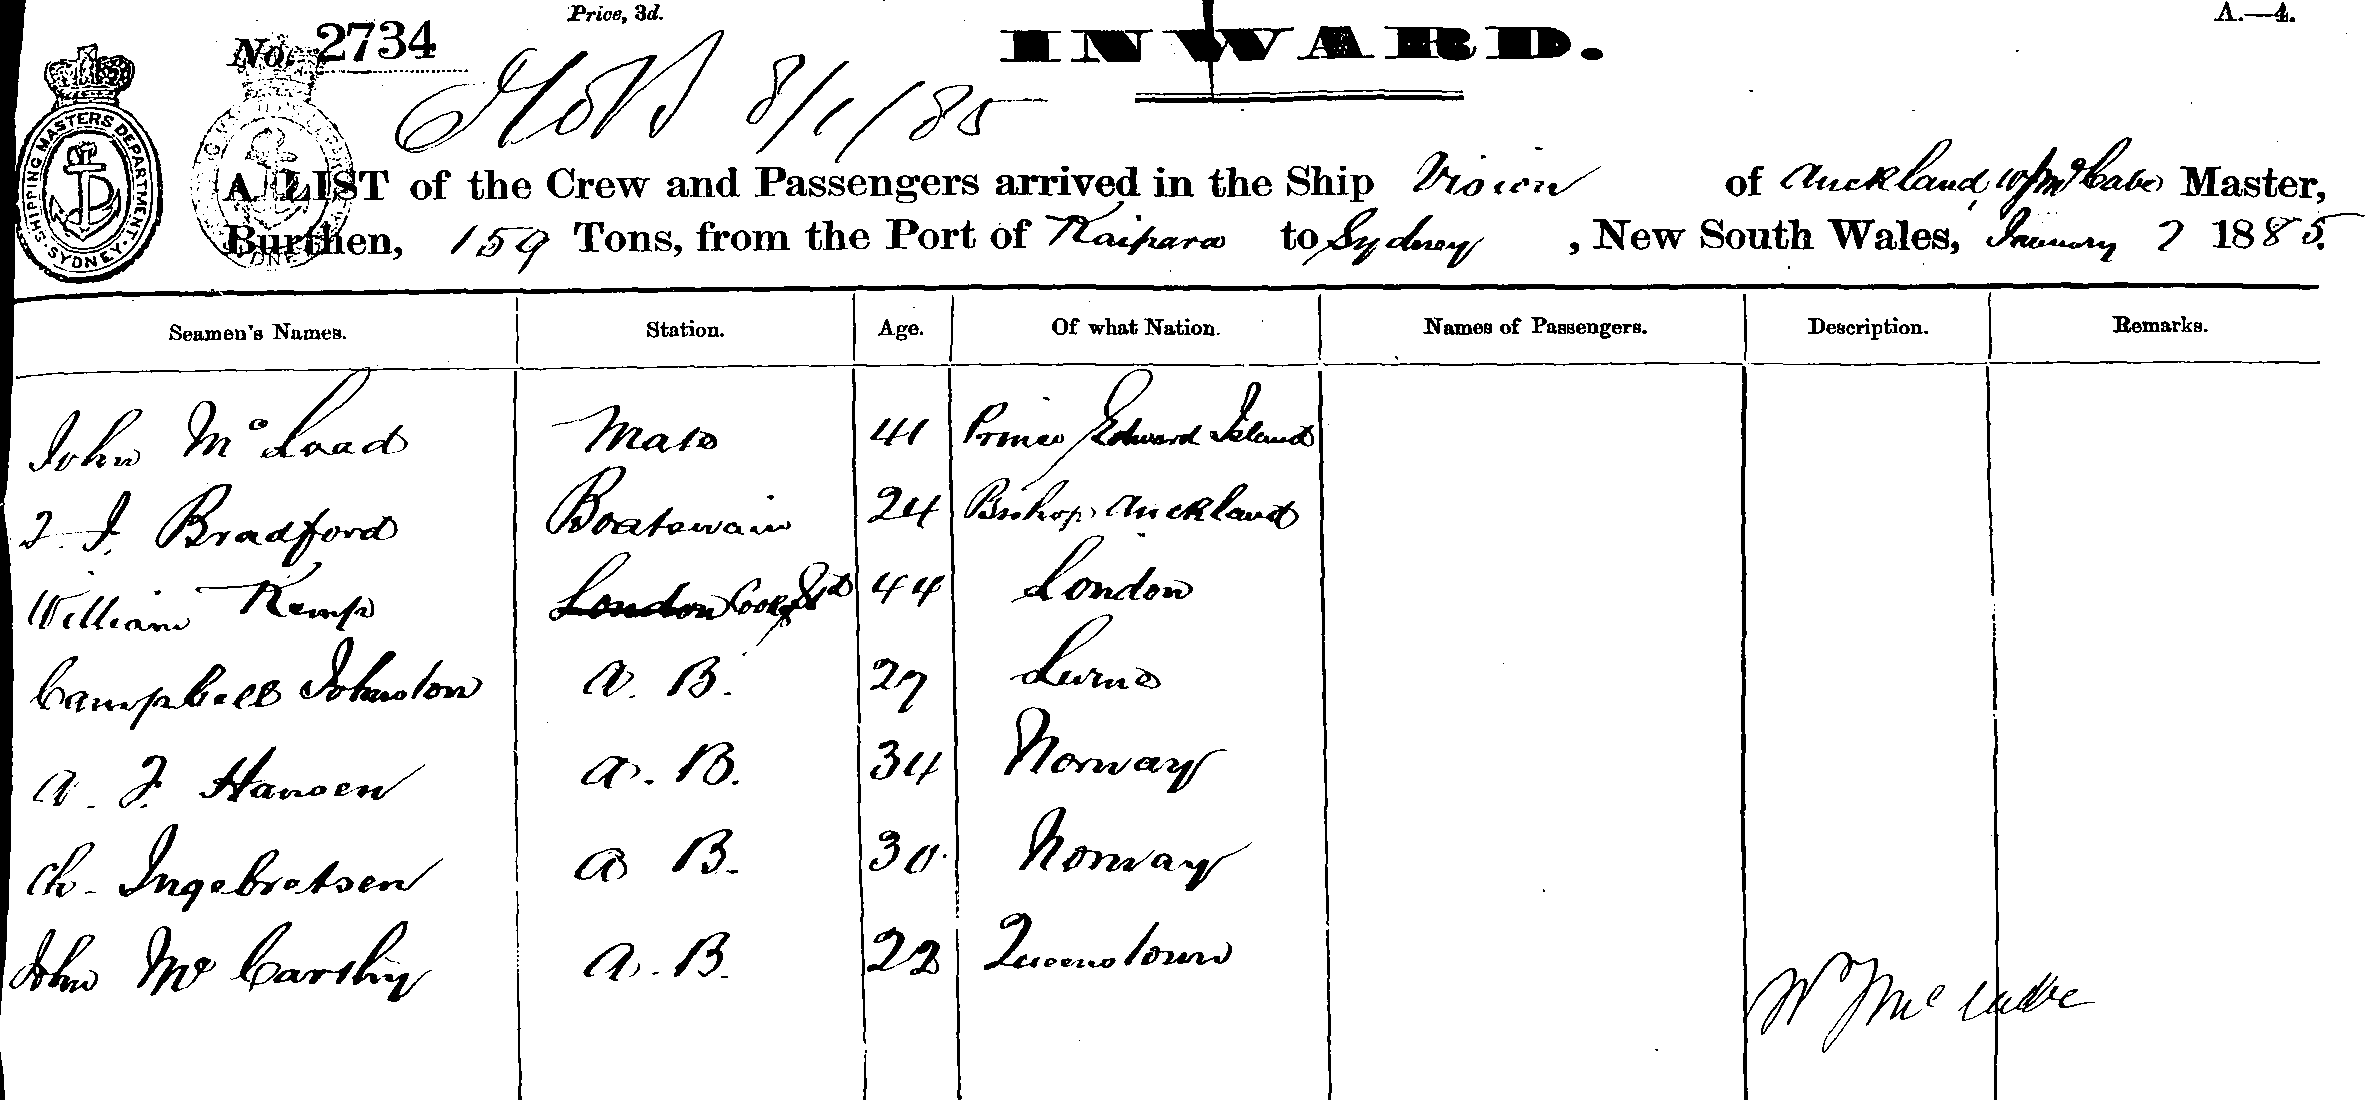 Price, 3d.
A.—4.
No. 2734
INWARD.
8/1/85
SHIPPING MASTERS DEPARTMENT. SYDNEY
A LIST of the Crew and Passengers arrived in the Ship Vision of Auckland, W J McCabe Master,
Burthen, 159 Tons, from the Port of Kaipara to Sydney, New South Wales, January 7 1885.
Seamen's Names. Station. Age. Of what Nation. Names of Passengers. Description. Remarks.
John McLoad Mate 41 Prince Edward Island
T. J. Bradford Boatswain 24 Bishop Auckland
William Kemp London Cook & Std 44 London
Campbell Johnston A. B. 27 Larne
A. J. Hansen A. B. 34 Norway
Ch. Ingebretsen A B. 30. Norway
John McCarthy A. B. 22 Queenstown
W J McCabe